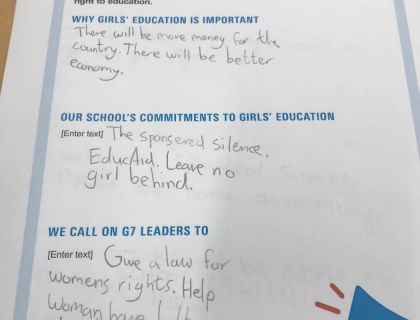 right to education.
WHY GIRLS' EDUCATION IS IMPORTANT
There will be more money for the
country. There will be better
economy.
OUR SCHOOL'S COMMITMENTS TO GIRLS' EDUCATION
[Enter text] The sponsered silence.
EducAid. Leave no
girl behind.
WE CALL ON G7 LEADERS TO
[Enter text] Give a law for
womens rights. Help
Woman have